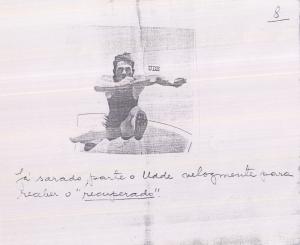 8
UDE
Já sarado, parte o Udde velozmente para
receber o "recuperado".